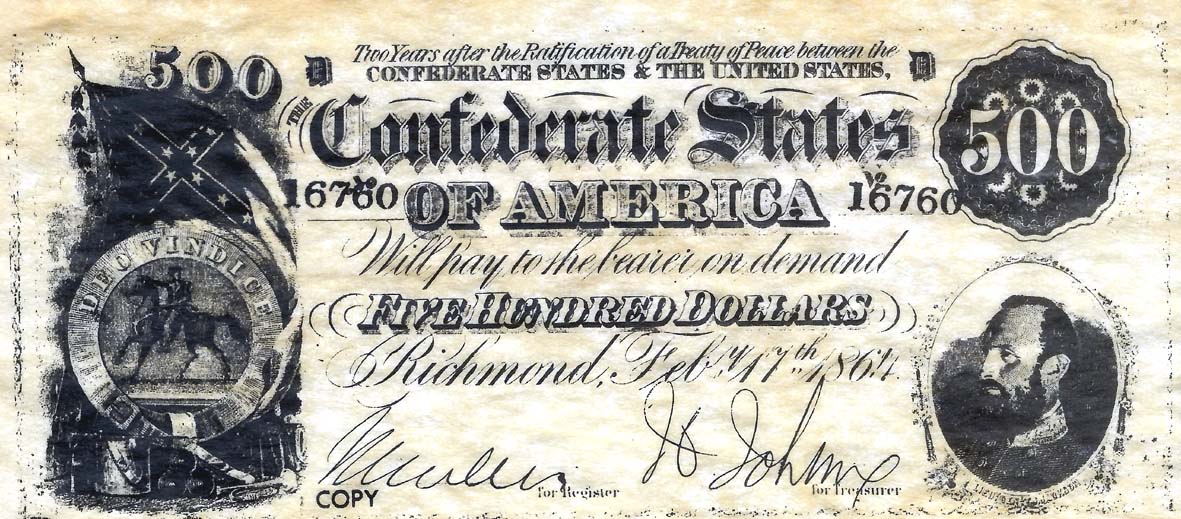 500
D
Two Years after the Ratification of a Treaty of Peace between the
D
CONFEDERATE STATES & THE UNITED STATES,
THE
Confederate States
500
16760
OF AMERICA
16760
Will pay to the bearer on demand
DEO VINDICE
FIVE HUNDRED DOLLARS
Richmond, Feby. 17th 1864.
COPY
for Register
for Treasurer